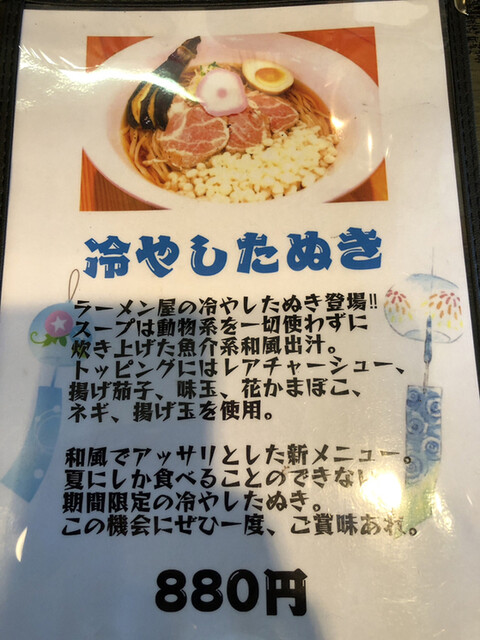 冷やしたぬき
ラーメン屋の冷やしたぬき登場!!
スープは動物系を一切使わずに
炊き上げた魚介系和風出汁。
トッピングにはレアチャーシュー、
揚げ茄子、味玉、花かまぼこ、
ネギ、揚げ玉を使用。
和風でアッサリとした新メニュー。
夏にしか食べることのできない
期間限定の冷やしたぬき。
この機会にぜひ一度、ご賞味あれ。
880円